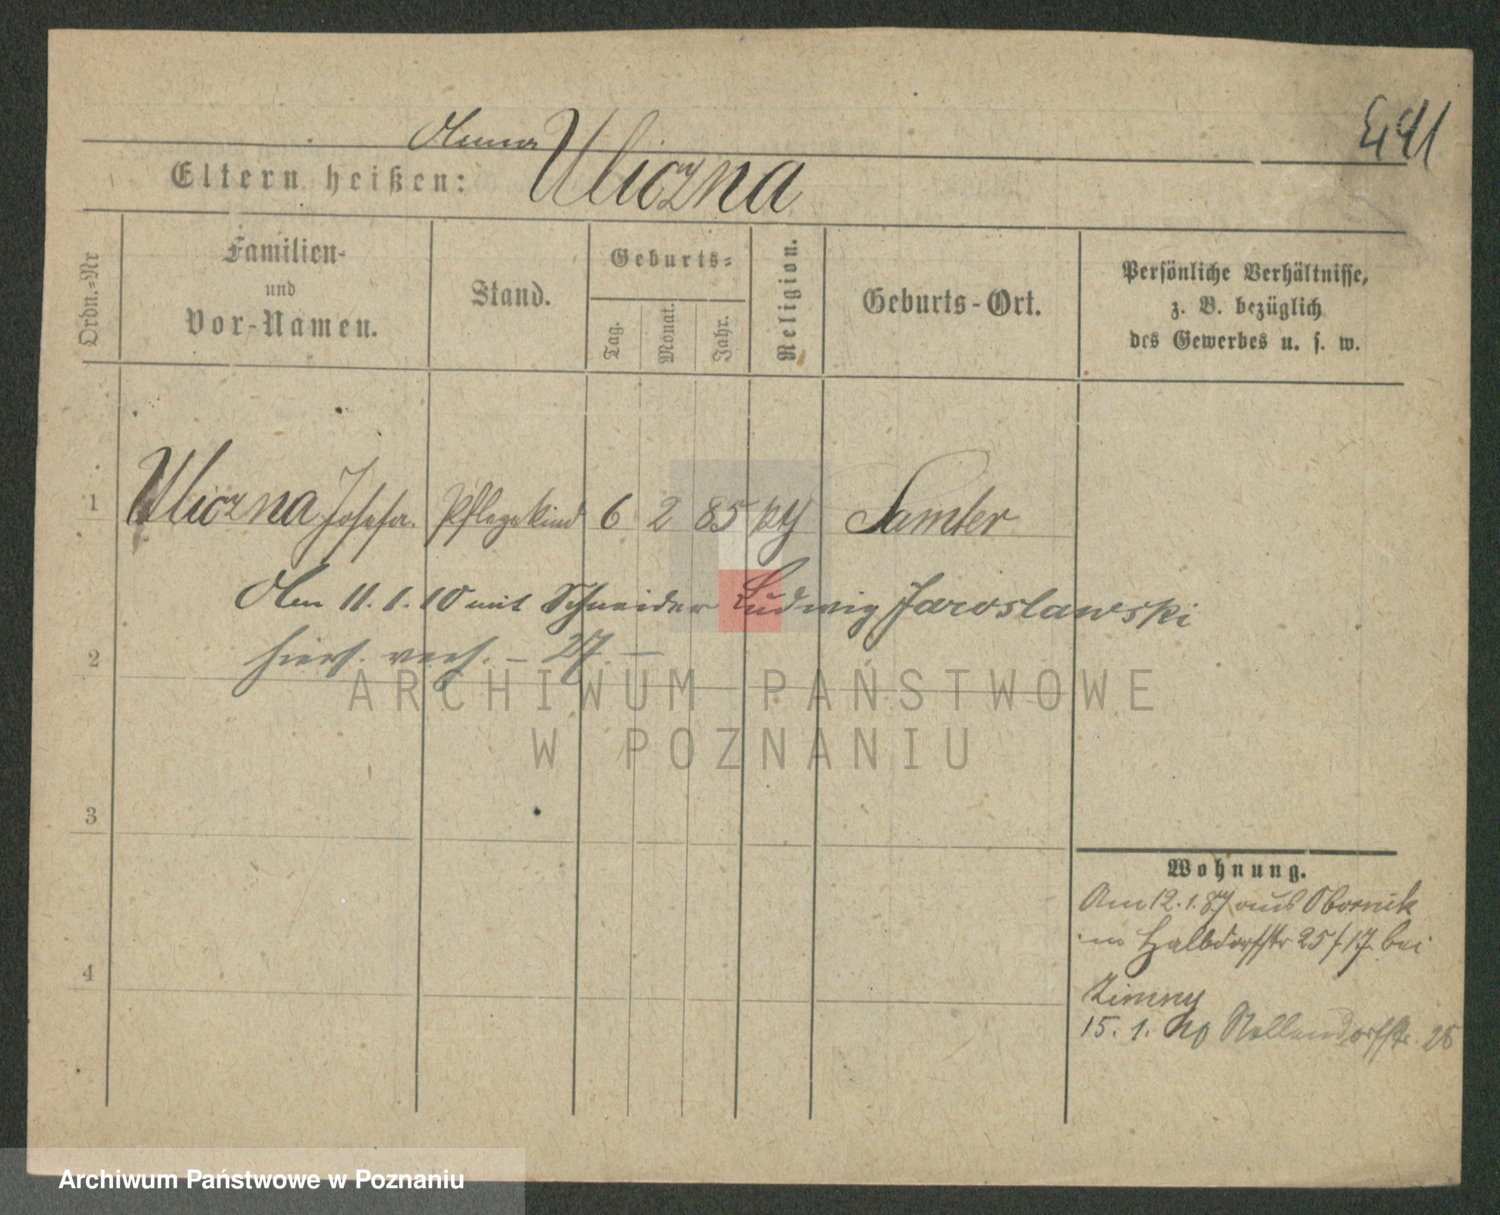 Eltern heißen: Anna Uliczna
Ordn.=Nr
Familien-
und
Vor-Namen.
Stand.
Geburts=
Tag.
Monat.
Jahr.
Religion.
Geburts-Ort.
Persönliche Verhältnisse,
z. B. bezüglich
des Gewerbes u. s. w.
1 Uliczna Josefa. Pflegekind 6 2 85 Samter
Am 11. 1. 10 mit Schneider Ludwig Jaroslawski
2 hiers. verh. – 27. –
ARCHIWUM PAŃSTWOWE
W POZNANIU
3
Wohnung.
Am 12. 1. 87 aus Obornik
Halbdorfstr 25/17 bei
4
Zimny
15. 1. Nollendorfstr. 25
Archiwum Państwowe w Poznaniu